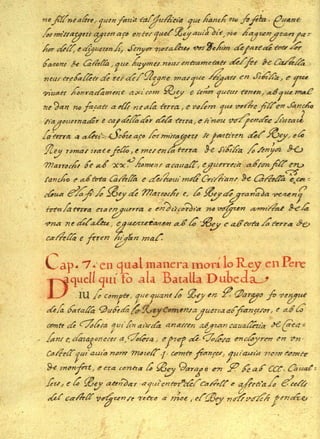 no fill ne altre, quen fania tal Justicia que hanch no fo feta. Quant
los missatgers agueren aço entes quel Rey auia dit, no hagueren gran pa-
hor dell, e digueren li, Senyor nosaltres ve de part de tots los
barons de Castella, que huymes nous entrametats del fet de Castella
vous treballets de res del Regne, mas que stigats en Sibilia, e que
viurets honradament axi com Rey e senyor que us tenen, ab que mal
ne dan no façats a ell ne a la terra, e volem que vostre fill en Sancho
sia gouernador e capdellador dela terra, e si nous vol pendre
la terra a aleu. Sobre aço los missatgers se partiren del Rey, e lo
Rey romas irat e fello, e mes en la terra de Sibilia lo senyor de
Marrochs be ab xx homens a cauall, e guerreia ab son fill en
Sancho e ab tota Castella e destroui molt Crestians de Castella e
deua Ella fi lo Rey de Marrochs e lo Rey de granada
tota la terra era en guerra e en discordia no volgren amistat de la
vna ne del altra, e guerreiauen ab lo Rey e ab tota la terra de
castella e feren hi gran mal.
Cap. 7. en qual manera mori lo Rey en Pere
aquell qui fo ala Batalla Dubeda
Diu lo compte, que quant lo Rey en P. Darago fo vengut
de la batalla Dubeda lo Rey comença guerra ab françesos, e ab lo
comte de Tolosa qui li aiuda anassen ab gran caualleria de Cata-
lans e, daragonesos a Tolosa, e prop de Tolosa encloyren en vn
castell qui auia nom Morell j. comte françes, qui auia nom comte
de monfort, e era contra lo Rey Darago en P. be ab ccc. Cauall-
ers, e lo Rey atendat aqui entorn del Castell e assetia lo. E cells
del castell volguense retre a merce, e l Rey nols volch pendre